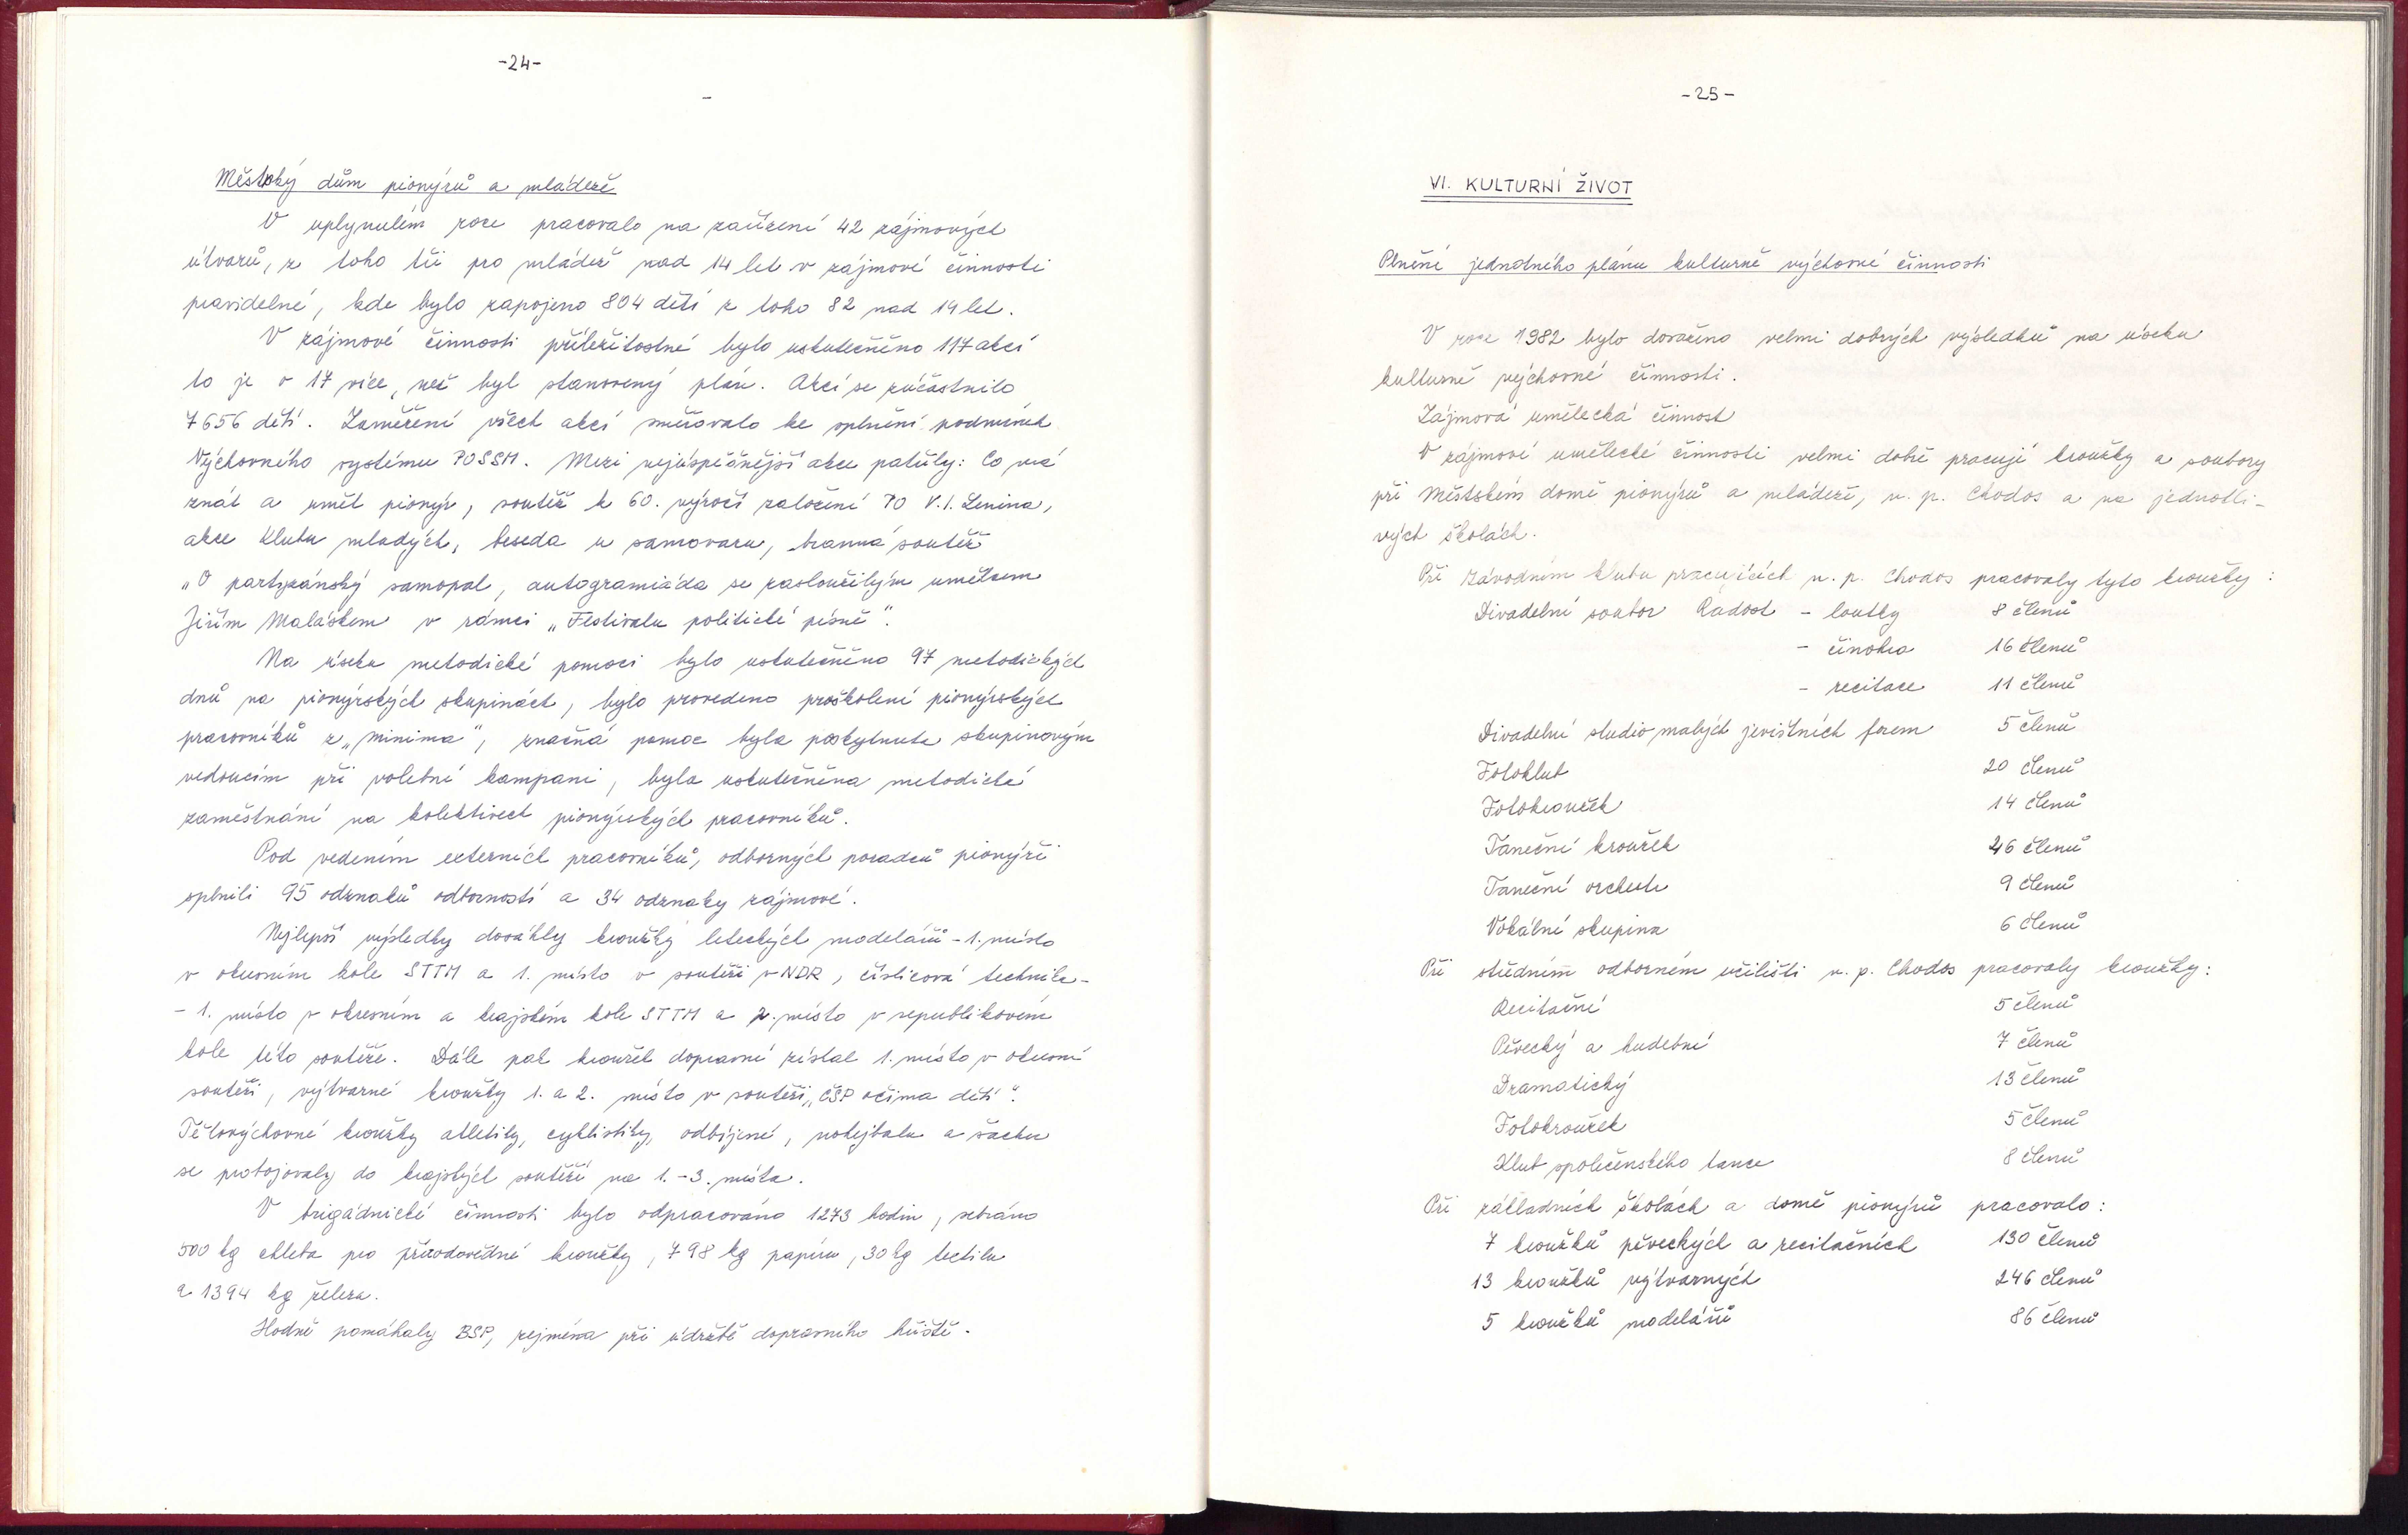 -24-
Městský dům pionýrů a mládeže
V uplynulém roce pracovalo na zařízení 42 zájmových
útvarů, z toho tři pro mládež nad 14 let v zájmové činnosti
pravidelné, kde bylo zapojeno 804 dětí z toho 82 nad 14 let.
V zájmové činnosti příležitostné bylo uskutečněno 117 akcí
to je o 17 více, než byl stanovený plán. Akcí se zúčastnilo
7 656 dětí. Zaměření všech akcí směřovalo ke splnění podmínek
Výchovného systému POSSM. Mezi nejúspěšnější akce patřily: Co má
znát a umět pionýr, soutěž k 60. výročí založení PO V.I. Lenina,
akce Klubu mladých, beseda u samovaru, branná soutěž
„O partyzánský samopal, autogramiáda se zasloužilým umělcem
Jiřím Maláskem v rámci „Festivalu politické písně".
Na úseku metodické pomoci bylo uskutečněno 97 metodických
dnů na pionýrských skupinách, bylo provedeno proškolení pionýrských
pracovníků z „minima", značná pomoc byla poskytnuta skupinovým
vedoucím při volební kampani, byla uskutečněna metodická
zaměstnání na kolektivech pionýrských pracovníků.
Pod vedením externích pracovníků, odborných poradců pionýři
splnili 95 odznaků odborností a 34 odznaky zájmové.
Nejlepší výsledky dosáhly kroužky leteckých modelářů - 1. místo
v okresním kole STTM a 1. místo v soutěži v NDR, číslicová technika -
- 1. místo v okresním a krajském kole STTM a 2. místo v republikovém
kole této soutěže. Dále pak kroužek dopravní získal 1. místo v okresní
soutěži, výtvarné kroužky 1. a 2. místo v soutěži „ČSP očima dětí".
Tělovýchovné kroužky atletiky, cyklistiky, odbíjené, nohejbalu a šachu
se probojovaly do krajských soutěží na 1. - 3. místa.
V brigádnické činnosti bylo odpracováno 1273 hodin, sebráno
500 kg chleba pro přírodovědné kroužky, 798 kg papíru, 30 kg textilu
a 1394 kg železa.
Hodně pomáhaly BSP, zejména při údržbě dopravního hřiště.
-25-
VI. KULTURNÍ ŽIVOT
Plnění jednotného plánu kulturně výchovné činnosti
V roce 1982 bylo dosaženo velmi dobrých výsledků na úseku
kulturně výchovné činnosti.
Zájmová umělecká činnost
V zájmové umělecké činnosti velmi dobře pracují kroužky a soubory
při Městském domě pionýrů a mládeže, n. p. Chodos a na jednotli-
vých školách.
Při Závodním klubu pracujících n. p. Chodos pracovaly tyto kroužky:
Divadelní soubor Radost - loutky 8 členů
- činohra 16 členů
- recitace 11 členů
Divadelní studio malých jevištních forem 5 členů
Fotoklub 20 členů
Fotokroužek 14 členů
Taneční kroužek 26 členů
Taneční orchestr 9 členů
Vokální skupina 6 členů
Při středním odborném učilišti n. p. Chodos pracovaly kroužky:
Recitační 5 členů
Pěvecký a hudební 7 členů
Dramatický 13 členů
Fotokroužek 5 členů
Klub společenského tance 8 členů
Při základních školách a domě pionýrů pracovalo:
7 kroužků pěveckých a recitačních 130 členů
13 kroužků výtvarných 246 členů
5 kroužků modelářů 86 členů